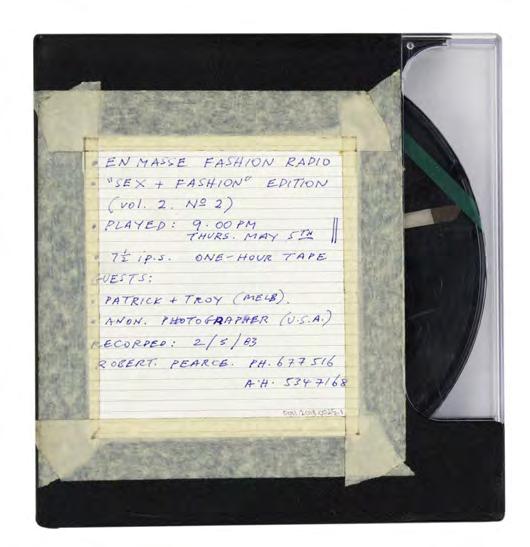 • EN MASSE FASHION RADIO
• "SEX + FASHION" EDITION
(VOL. 2. Nº 2)
• PLAYED: 9.00 PM
THURS. MAY 5TH
• 7½ i.p.s. ONE-HOUR TAPE
GUESTS:
• PATRICK + TROY (MELB).
• ANON. PHOTOGRAPHER (U.S.A.)
RECORDED: 2/5/83
ROBERT. PEARCE. PH. 677516
A.H. 5347168